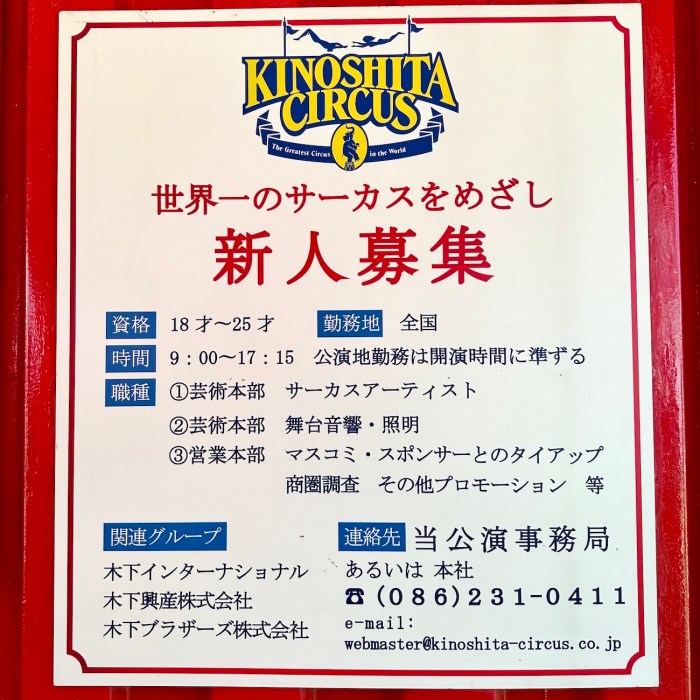 KINOSHITA
CIRCUS
The Greatest Circus in the World
世界一のサーカスをめざし
新人募集
資格 18才～25才 勤務地 全国
時間 9：00～17：15 公演地勤務は開演時間に準ずる
職種 ①芸術本部 サーカスアーティスト
②芸術本部 舞台音響・照明
③営業本部 マスコミ・スポンサーとのタイアップ
商圏調査 その他プロモーション 等
関連グループ
木下インターナショナル
木下興産株式会社
木下ブラザーズ株式会社
連絡先 当公演事務局
あるいは 本社
☎(086)231-0411
e-mail:
webmaster@kinoshita-circus.co.jp